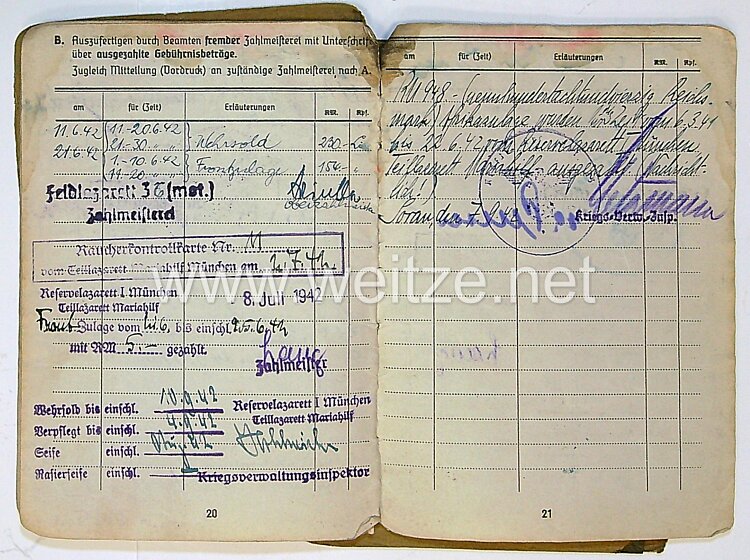 B. Auszufertigen durch Beamten fremder Zahlmeisterei mit Unterschrift
über ausgezahlte Gebührnisbeträge.
Zugleich Mitteilung (Vordruck) an zuständige Zahlmeisterei nach A.
am für (Zeit) Erläuterungen RM. Rpf.
11.6.42 11.-20.6.42
21.6.42 21.-30. " " Wehrsold
1.-10.6.42 Frontzulage
11.-20. " "
Feldlazarett (mot.)
Zahlmeisterei
Raucherkontrollkarte Nr. 11
vom Teillazarett Mariahilf München am 2.7.42
Reservelazarett I München
Teillazarett Mariahilf
8. Juli 1942
Frontzulage vom bis einschl. 25.6.42
mit RM 5.- gezahlt.
Zahlmeister
Wehrsold bis einschl. 10.9.42
Verpflegt bis einschl. 4.9.42
Seife einschl. Aug. 42
Rasierseife einschl.
Reservelazarett I München
Teillazarett Mariahilf
Kriegsverwaltungsinspektor
20
am für (Zeit) Erläuterungen RM. Rpf.
RM 948.- (neunhundertachtundvierzig Reichs-
mark) Afrikazulage wurden vom 6.3.41
bis 22.6.42 vom Reservelazarett I München
Teillazarett Mariahilf ausgezahlt.
Sorau, den
Kriegs-Verw.-Insp.
21
www.weitze.net